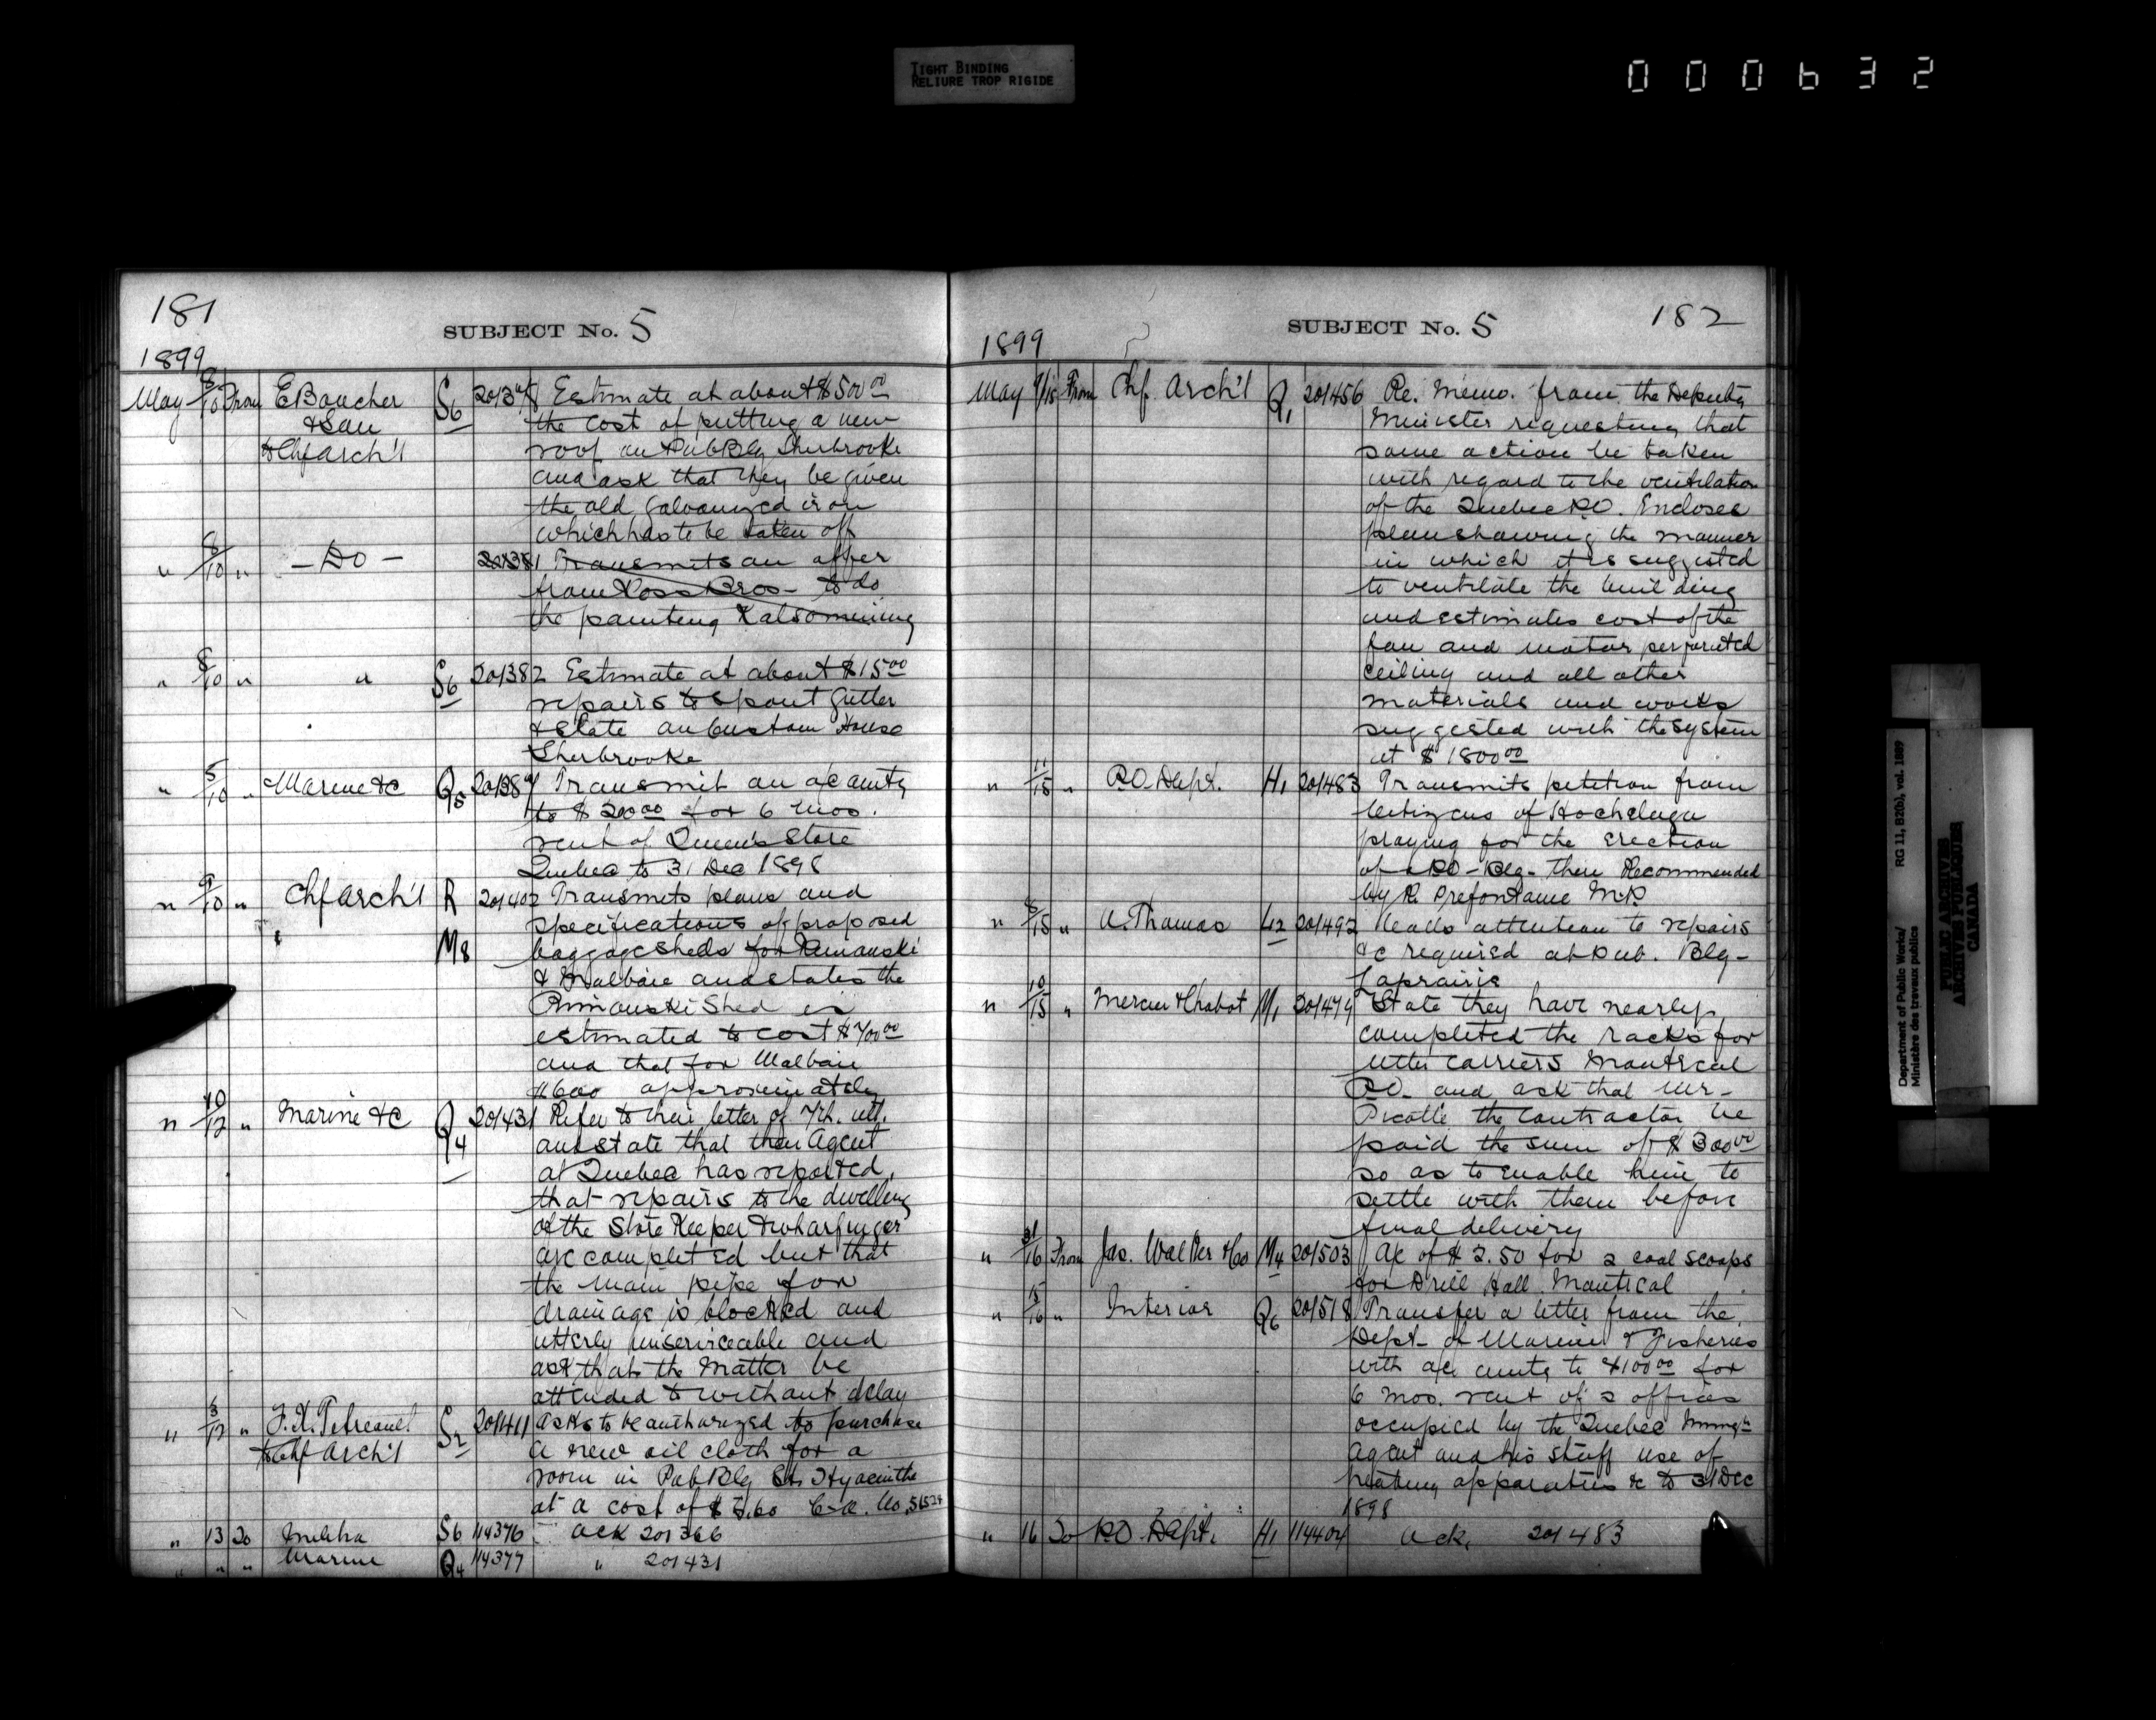 TIGHT BINDING
RELIURE TROP RIGIDE
000632
181
SUBJECT No. 5
1899
May 8/10 From E Boucher S6 Estimate at about $500 00
& Son the cost of putting a new
to Chf Arch'l roof on Pub Blg Sherbrooke
and ask that they be given
the old galvanized iron
which has to be taken off
" 8/10 " - Do - 201381 Transmits an offer
from Ross Bros - to do
the painting Kalsomining
" 8/10 " " S6 201382 Estimate at about $15 00
repairs to spout gutter
& slate on Custom House
Sherbrooke
" 5/10 " Marine &c Q5 20138 Transmit an a/c amtg
to $200 00 for 6 mos.
rent of Queen's Store
Quebec to 31 Dec 1898
" 9/10 " Chf Arch'l R 201402 Transmits plans and
specifications of proposed
M8 baggage sheds for Rimouski
& Malbaie and states the
Rimouski Shed is
estimated to cost $700 00
and that for Malbaie
$600 approximately
" 10/12 " Marine &c Q4 201431 Refer to their letter of 7th. ult.
and state that their Agent
at Quebec has reported,
that repairs to the dwelling
of the Store Keeper & wharfinger
are completed but that
the main pipe for
drainage is blocked and
utterly unserviceable and
ask that the matter be
attended to without delay
" 3/12 " F. X. S2 201411 asks to be authorized to purchase
to Chf Arch'l a new oil cloth for a
room in Pub Blg St. Hyacinthe
at a cost of
" 13 To Militia S6 114376 ack 201366
" " " Marine Q4 114377 " 201431
182
SUBJECT No. 5
1899
May 9/15 From Chf. Arch'l Q1 201456 Re. Memo. from the Deputy
Minister requesting that
some action be taken
with regard to the ventilation
of the Quebec P.O. Encloses
plan showing the manner
in which it is suggested
to ventilate the building
and estimates cost of the
fan and motor perforated
ceiling and all other
materials and works
suggested with the system
at $1800 00
" 11/15 " P.O. Dept. H1 201483 Transmits petition from
Citizens of Hochelaga
praying for the erection
of a P.O - Blg - there Recommended
by R. Prefontaine M.P.
" 8/15 " A. Thomas L12 201492 Calls attention to repairs
&c required at Pub. Blg -
Laprairie
" 10/15 " Mercier & Chabot M1 201479 State they have nearly
completed the racks for
letter carriers Montreal
P.O. and ask that Mr-
the contractor be
paid the sum of $300 00
so as to enable him to
settle with them before
final delivery
" 31/16 From Jas. Walker & Co M4 201503 A/c of $2.50 for 2 coal scoops
for Drill Hall Montreal
" 15/16 " Interior Q6 201518 Transfer a letter from the
Dept - of Marine & Fisheries
with a/c amtg to $100 00 for
6 mos. rent of 2 offices
occupied by the Quebec Immgn
Agent and his staff use of
heating apparatus &c to 31 Dec
1898
" 16 To P.O. Dept. H1 114404 ack. 201483
Department of Public Works/ RG 11, B2(b), vol. 1889
Ministère des travaux publics
PUBLIC ARCHIVES
ARCHIVES PUBLIQUES
CANADA